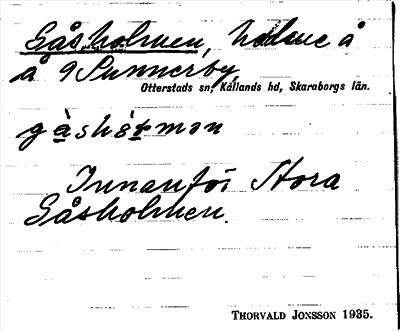 Gåsholmen, holme å
å 9 Sunnerby,
Otterstads sn, Kållands hd, Skaraborgs län.
gàshòrmən
Innanför Stora
Gåsholmen.
THORVALD JONSSON 1935.